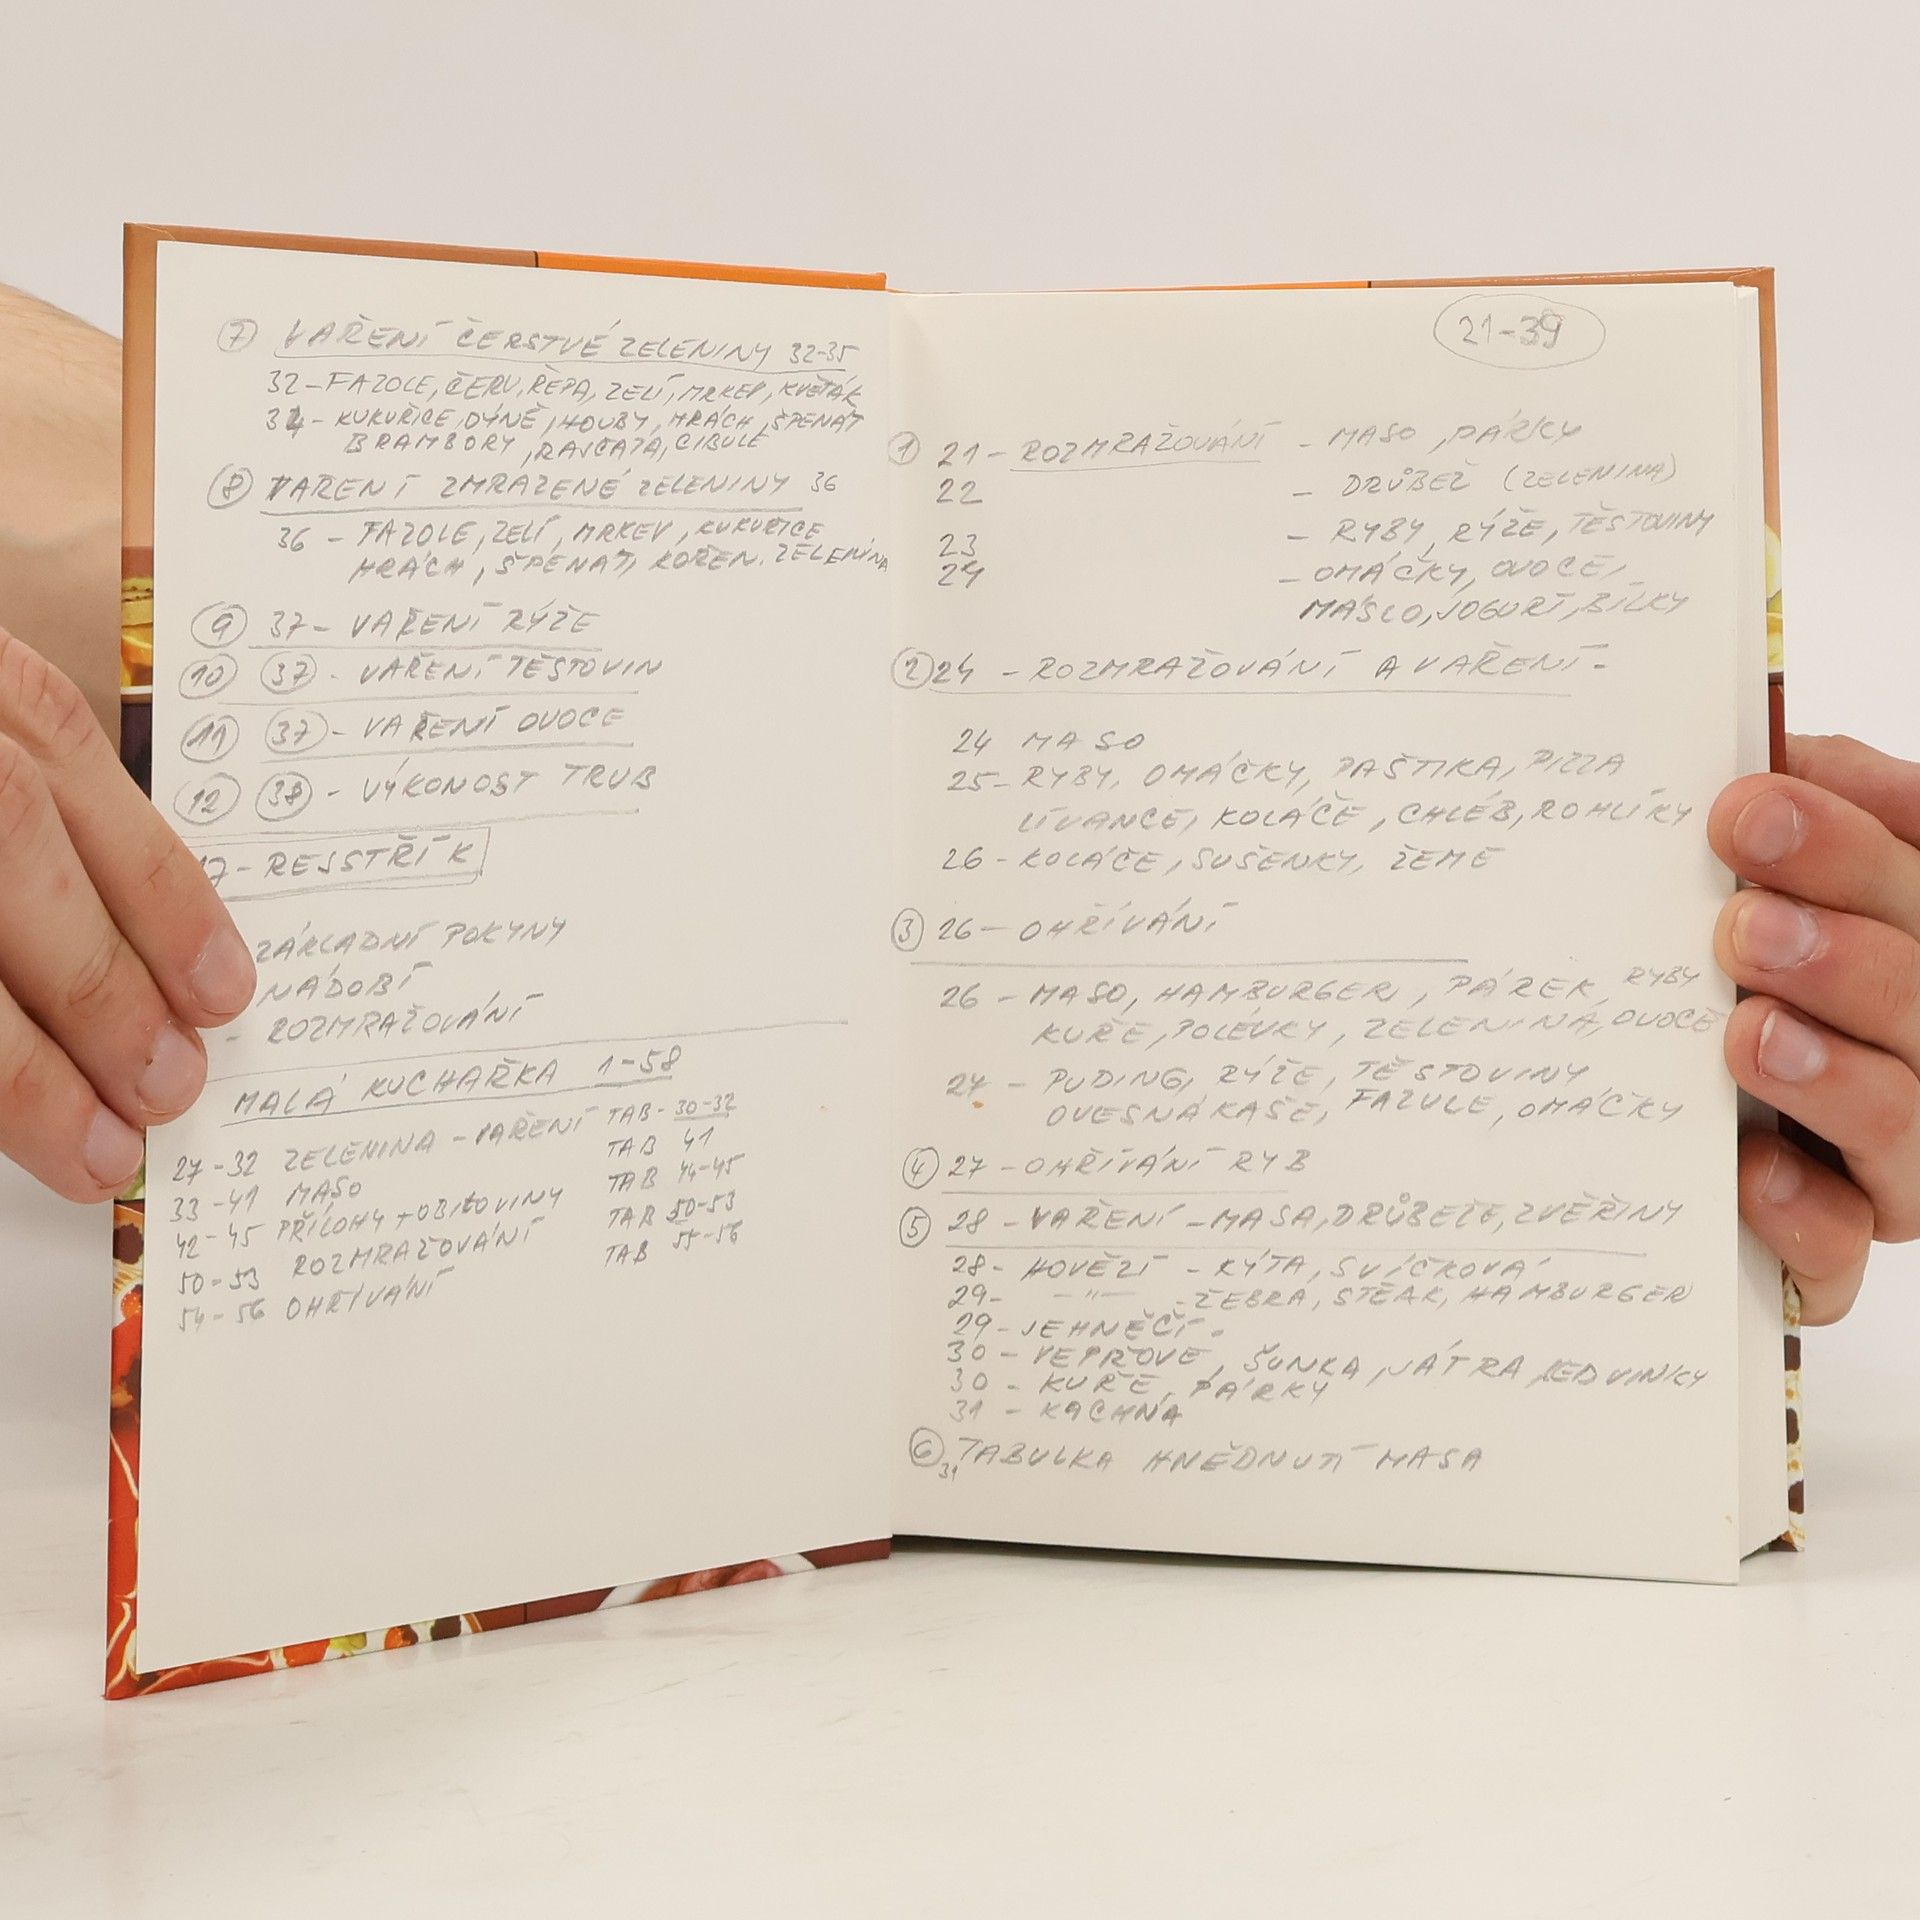 7 VAŘENÍ ČERSTVÉ ZELENINY 32-35
32-FAZOLE, ČERV. ŘEPA, ZELÍ, MRKEV, KVĚTÁK
34- KUKUŘICE, DÝNĚ, HOUBY, HRÁCH, ŠPENÁT
BRAMBORY, RAJČATA, CIBULE
8 VAŘENÍ ZMRAZENÉ ZELENINY 36
36 - FAZOLE, ZELÍ, MRKEV, KUKUŘICE
HRÁCH, ŠPENÁT, KOŘEN. ZELENINA
9 37- VAŘENÍ RÝŽE
10 37 - VAŘENÍ TĚSTOVIN
11 37 - VAŘENÍ OVOCE
12 38 - VÝKONOST TRUB
17-REJSTŘÍK
ZÁKLADNÍ POKYNY
NÁDOBÍ
- ROZMRAŽOVÁNÍ
MALÁ KUCHAŘKA 1-58
27-32 ZELENINA - VAŘENÍ TAB- 30-32
33-41 MASO TAB 41
42-45 PŘÍLOHY + OBILOVINY TAB 44-45
50-53 ROZMRAŽOVÁNÍ TAB 50-53
54-56 OHŘÍVÁNÍ TAB 55-56
21-39
1 21- ROZMRAŽOVÁNÍ - MASO, PÁRKY
22 - DRŮBEŽ (ZELENINA)
23 - RYBY, RÝŽE, TĚSTOVINY
24 - OMÁČKY, OVOCE,
MÁSLO, JOGURT, BÍLKY
2 24 - ROZMRAŽOVÁNÍ A VAŘENÍ-
24 MASO
25- RYBY, OMÁČKY, PAŠTIKA, PIZZA
LÍVANCE, KOLÁČE, CHLÉB, ROHLÍKY
26 - KOLÁČE, SUŠENKY, ŽEMLE
3 26- OHŘÍVÁNÍ
26 - MASO, HAMBURGER, PÁREK, RYBY
KUŘE, POLÉVKY, ZELENINA, OVOCE
27 - PUDING, RÝŽE, TĚSTOVINY
OVESNÁ KAŠE, FAZOLE, OMÁČKY
4 27 - OHŘÍVÁNÍ RYB
5 28 - VAŘENÍ - MASA, DRŮBEŽE, ZVĚŘINY
28- HOVĚZÍ - KÝTA, SVÍČKOVÁ
29- -"- - ŽEBRA, STEAK, HAMBURGER
29- JEHNĚČÍ -
30 - VEPŘOVÉ, ŠUNKA, JÁTRA, LEDVINKY
30 - KUŘE, PÁRKY
31 - KACHNA
6 31 TABULKA HNĚDNUTÍ MASA